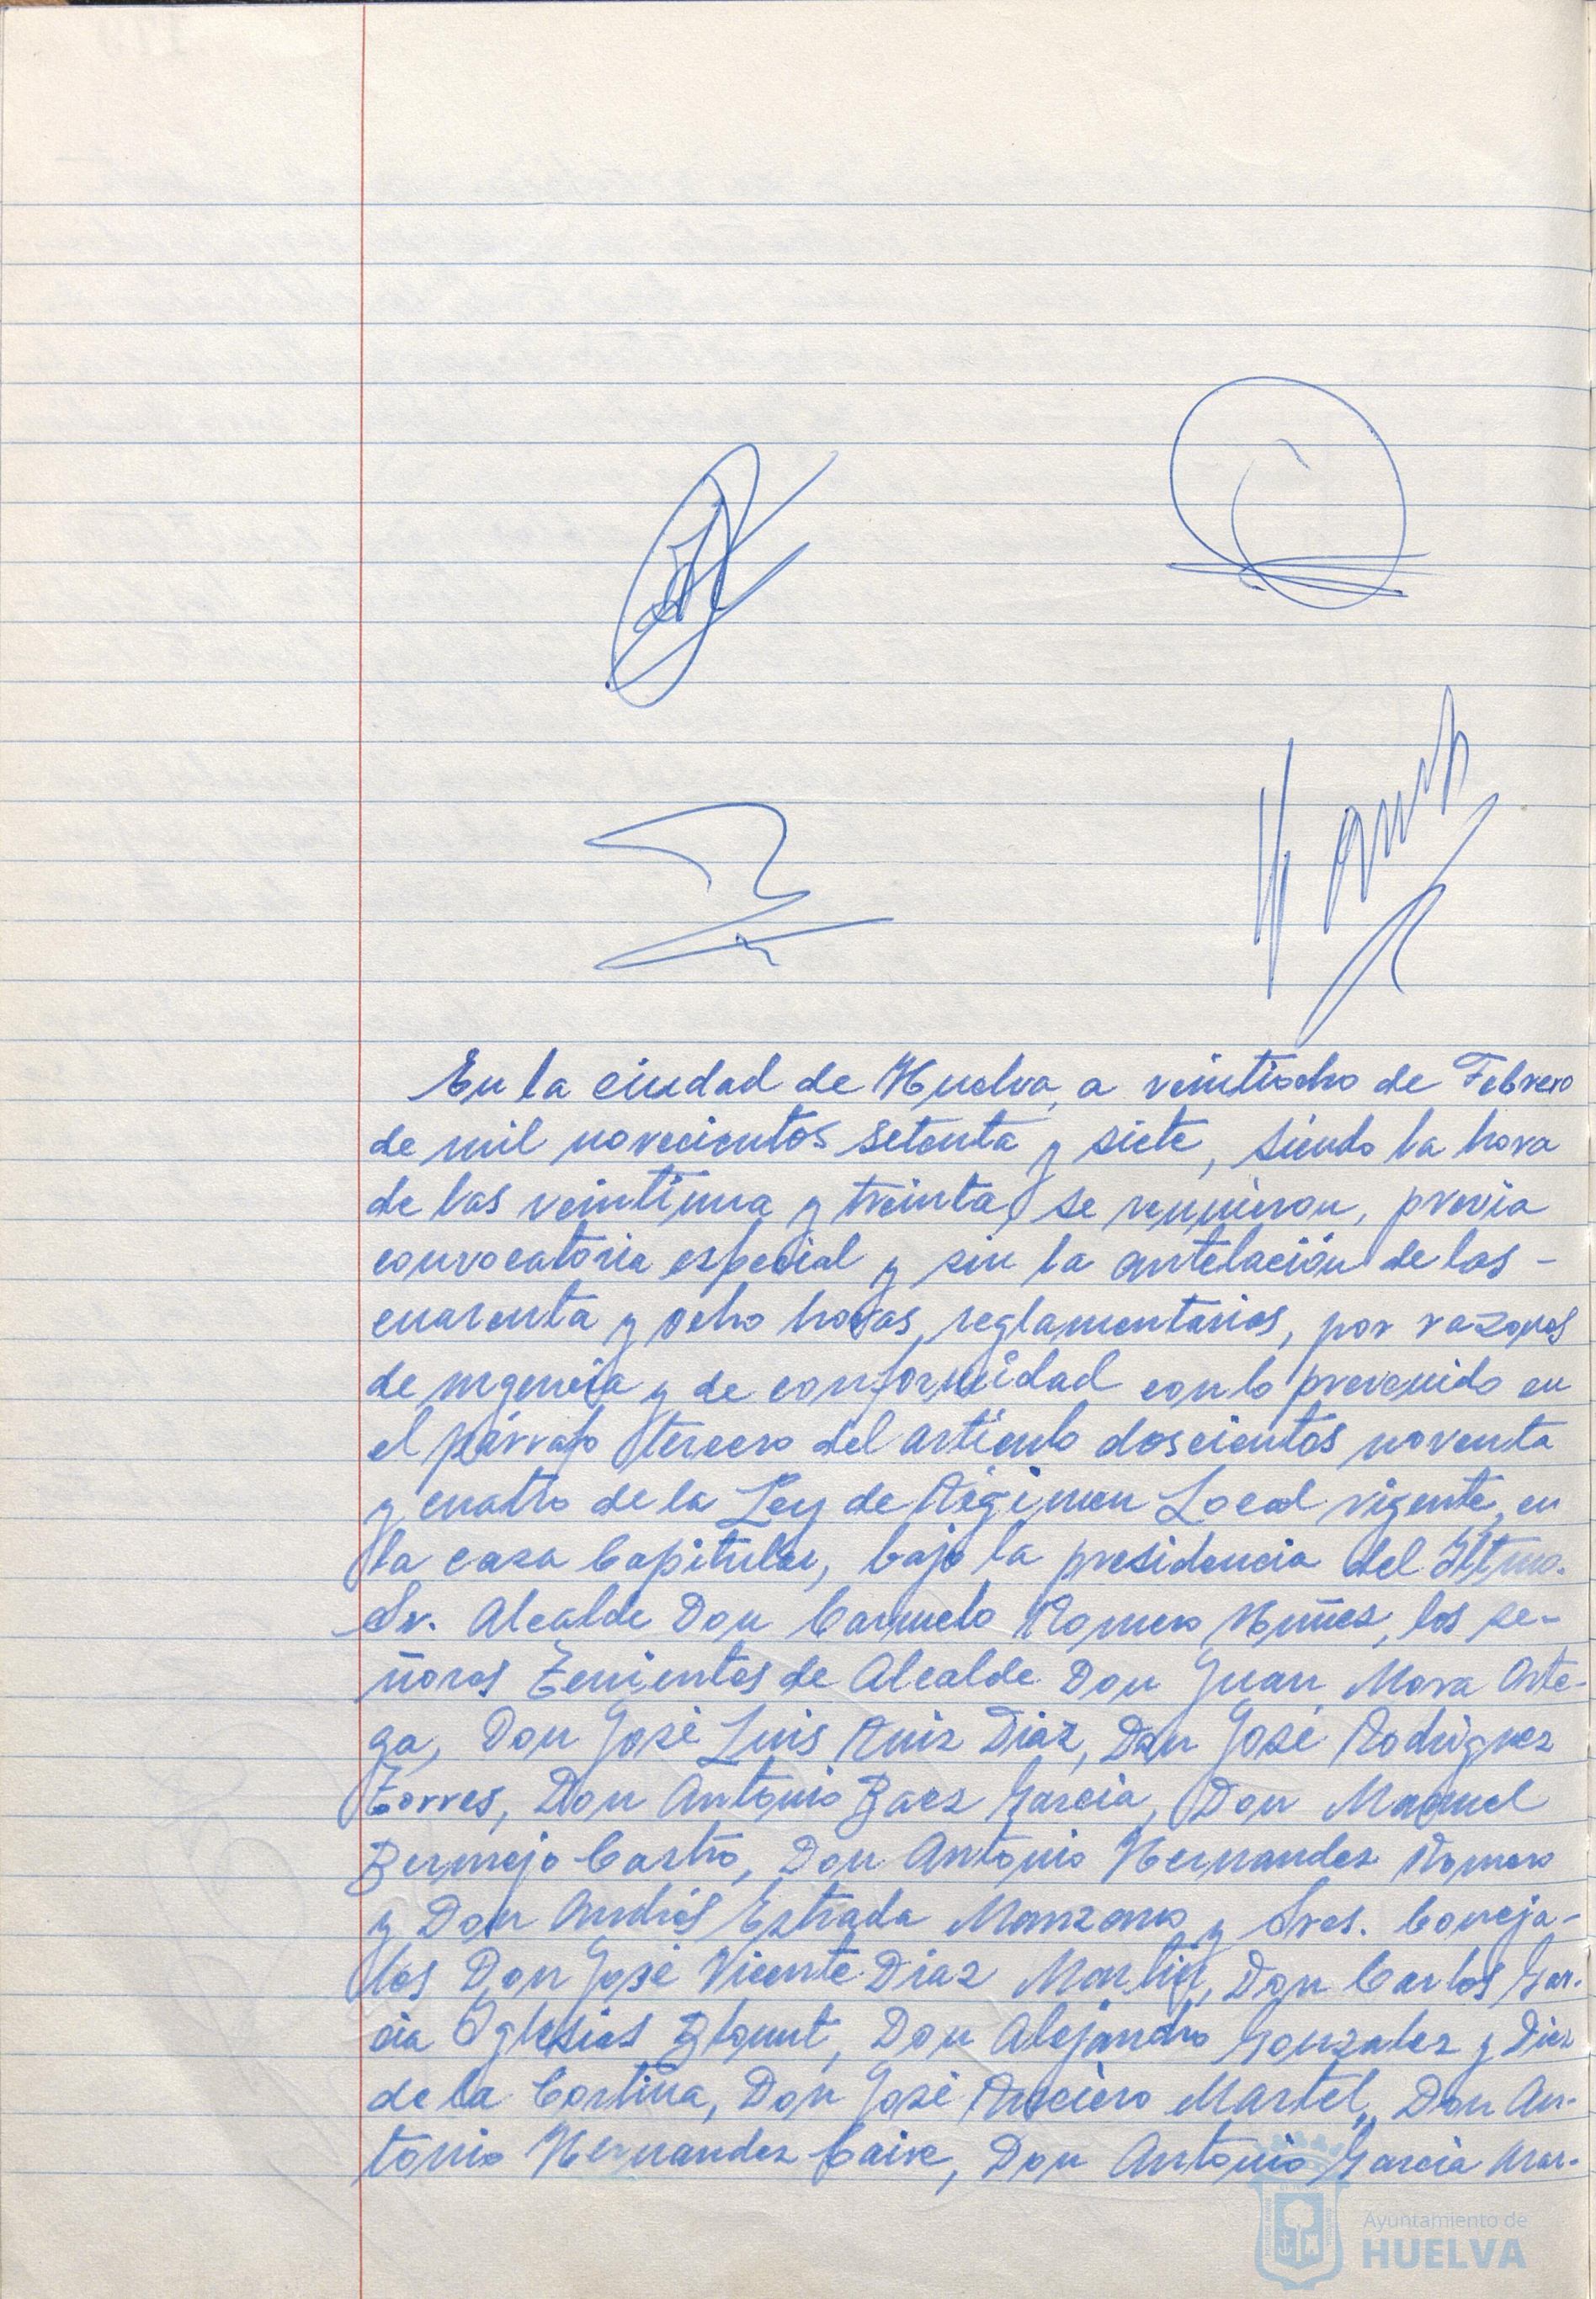 En la ciudad de Huelva, a veintiocho de Febrero
de mil novecientos setenta y siete, siendo la hora
de las veintiuna y treinta, se reunieron, previa
convocatoria especial y sin la antelación de las -
cuarenta y ocho horas, reglamentarias, por razones
de urgencia y de conformidad con lo prevenido en
el párrafo tercero del artículo doscientos noventa
y cuatro de la Ley de Régimen Local vigente, en
la casa Capitular, bajo la presidencia del Iltmo.
Sr. Alcalde Don Carmelo Romero Núñez, los se-
ñores Tenientes de Alcalde Don Juan Mora Orte-
ga, Don José Luis Ruiz Diaz, Don José Rodriguez
Torres, Don Antonio Baez Garcia, Don Manuel
Bermejo Castro, Don Antonio Hernandez Romero
y Don Andrés Estrada Manzano y Sres. Conceja-
les Don José Vicente Diaz Martin, Don Carlos Gar-
cia Iglesias Blount, Don Alejandro Gonzalez y Diez
de la Cortina, Don José Arciero Martel, Don An-
tonio Hernandez Caire, Don Antonio Garcia Mar-
Ayuntamiento de
HUELVA